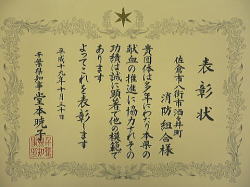 表彰状
佐倉市八街市酒々井町
消防組合様
貴団体は多年にわたり本県の
献血の推進に協力されその
功績は誠に顕著で他の模範で
あります
よってこれを表彰します
平成十九年十月二十日
千葉県知事 堂本暁子